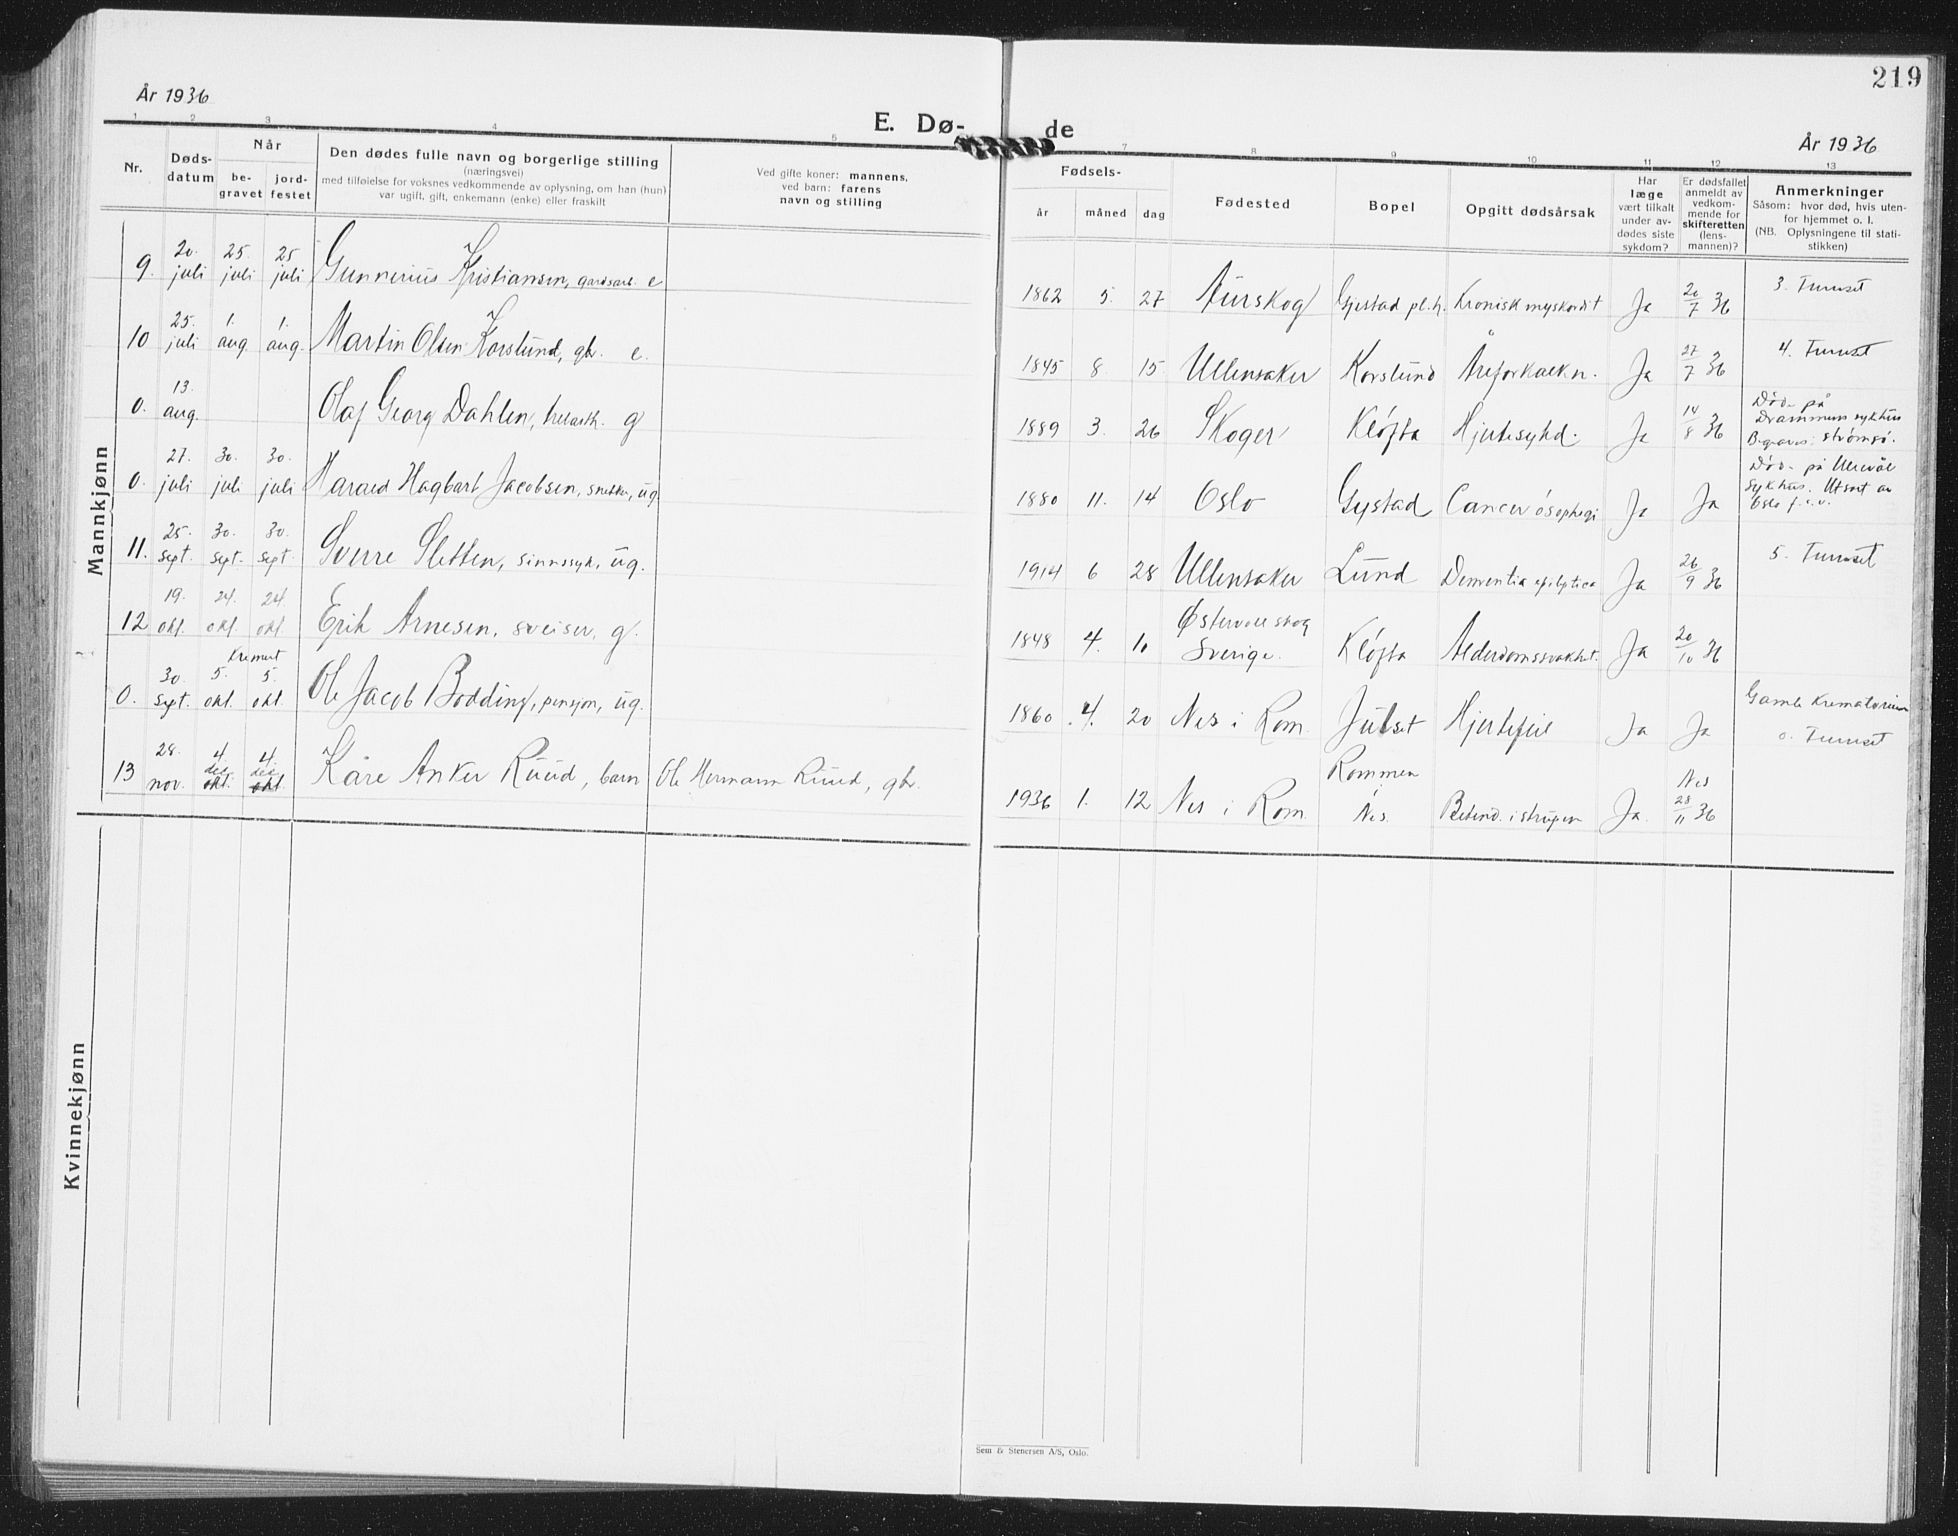 219
År 1936
E. Dø-
de
År 1936
1 2 3 4 5 7 8 9 10 11 12 13
Nr.
Døds-
datum
Når
be-
gravet
jord-
festet
Den dødes fulle navn og borgerlige stilling
(næringsvei)
med tilføielse for voksnes vedkommende av oplysning, om han (hun)
var ugift, gift, enkemann (enke) eller fraskilt
Ved gifte koner: mannens,
ved barn: farens
navn og stilling
Fødsels-
år måned dag
Fødested
Bopel
Opgitt dødsårsak
Har
læge
vært tilkalt
under av-
dødes siste
sykdom?
Er dødsfallet
anmeldt av
vedkom-
mende for
skifteretten
(lens-
mannen)?
Anmerkninger
Såsom: hvor død, hvis uten-
for hjemmet o. l.
(NB. Oplysningene til stati-
stikken)
Mannkjønn
9. 20. juli 25. juli 25 juli Gunnerius Kristiansen, gardsarb. e 1862 5. 27 Aurskog Gjestad pl.h. Kronisk myokardit Ja 20/7 36 3. Furuset
10 25. juli 1. aug. 1. aug. Martin Olsen Korslund, gbr. e. 1845 8. 15. Ullensaker Korslund Åreforkalkn. Ja 27/7 36 4. Furuset
0. 13. aug. Olaf Georg Dahlen, g 1889 3. 26 Skoger Kløfta Hjertesykd. Ja 14/8 36 Død på
Drammens sykhus
Begraves: Strømsø.
0. 27. juli 30. juli 30. juli Harald Hagbart Jacobsen, snekker, ug. 1880 11. 14 Oslo Gystad Cancer øsophagi Ja Ja Død på Ullevål
sykhus. Utsort av
Oslo f.e.v.
11. 25. sept. 30. sept. 30. sept. Sverre Sletten, sinnssyk, ug. 1914 6 28 Ullensaker Lund Dementia epileptica Ja 26/9 36 5. Furuset
12 19. okt. 24. okt. 24 okt. Erik Arnesen, sveiser, g. 1848 4. 10 Østervallskog
Sverige. Kløfta Alderdomssvakhet. Ja 20/10 36
Kremert
0. 30. sept. 5. okt. 5. okt. Ole Jacob Bodding, pensjon, ug. 1860 4. 20 Nes i Rom. Julset Hjertefeil Ja Ja Gamle Krematorium
o. Furuset
13 28. nov. 4. des. okt. 4. des okt. Kåre Anker Ruud, barn Ole Hermann Ruud, gbr. 1936 1. 12 Nes i Rom. Rommen
Nes. Betend. i strupen Ja. Nes
28/11 36
Kvinnekjønn
Sem & Stenersen A/S, Oslo.